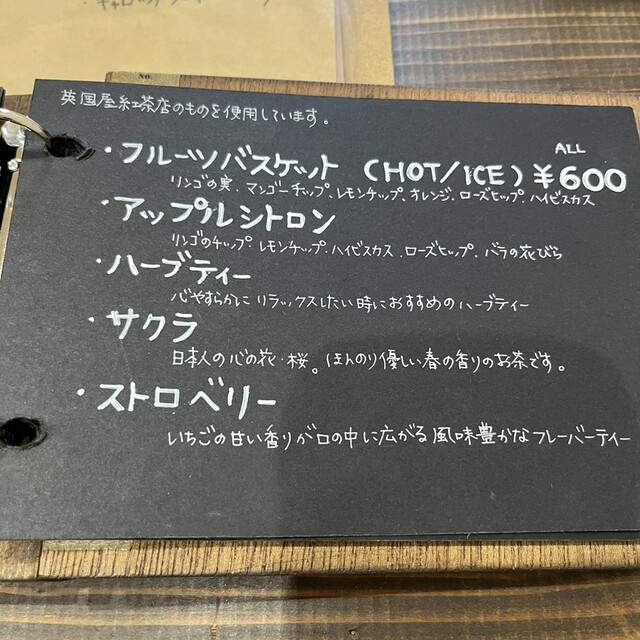 No.
英国屋紅茶店のものを使用しています。
ALL
・フルーツバスケット (HOT/ICE) ¥600
リンゴの実、マンゴーチップ、レモンチップ、オレンジ、ローズヒップ、ハイビスカス
・アップルシトロン
リンゴのチップ、レモンチップ、ハイビスカス、ローズヒップ、バラの花びら
・ハーブティー
心やすらかにリラックスしたい時におすすめのハーブティー
・サクラ
日本人の心の花・桜。ほんのり優しい春の香りのお茶です。
・ストロベリー
いちごの甘い香りが口の中に広がる風味豊かなフレーバーティー